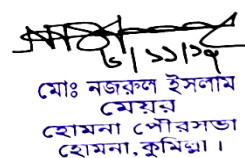 মোঃ নজরুল ইসলাম
মেয়র
হোমনা পৌরসভা
হোমনা, কুমিল্লা।